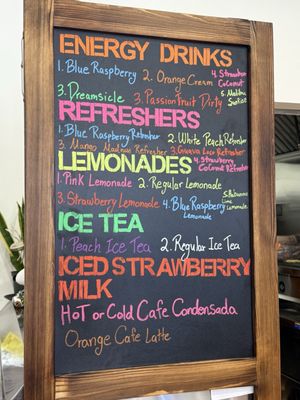 ENERGY DRINKS
1. Blue Raspberry 2. Orange Cream 4. Strawberry Coconut
3. Dreamsicle 3. Passion Fruit Dirty 5. Malibu Sunrise
REFRESHERS
1. Blue Raspberry Refresher 2. White Peach Refresher
3. Mango Refresher 3. Guava Lava Refresher
LEMONADES 4. Strawberry Coconut Refresher
1. Pink Lemonade 2. Regular Lemonade
3. Strawberry Lemonade 4. Blue Raspberry Lemonade 5. Lime Lemonade
ICE TEA
1. Peach Ice Tea 2. Regular Ice Tea
ICED STRAWBERRY
MILK
HoT or Cold Cafe Condensada
Orange Cafe Latte